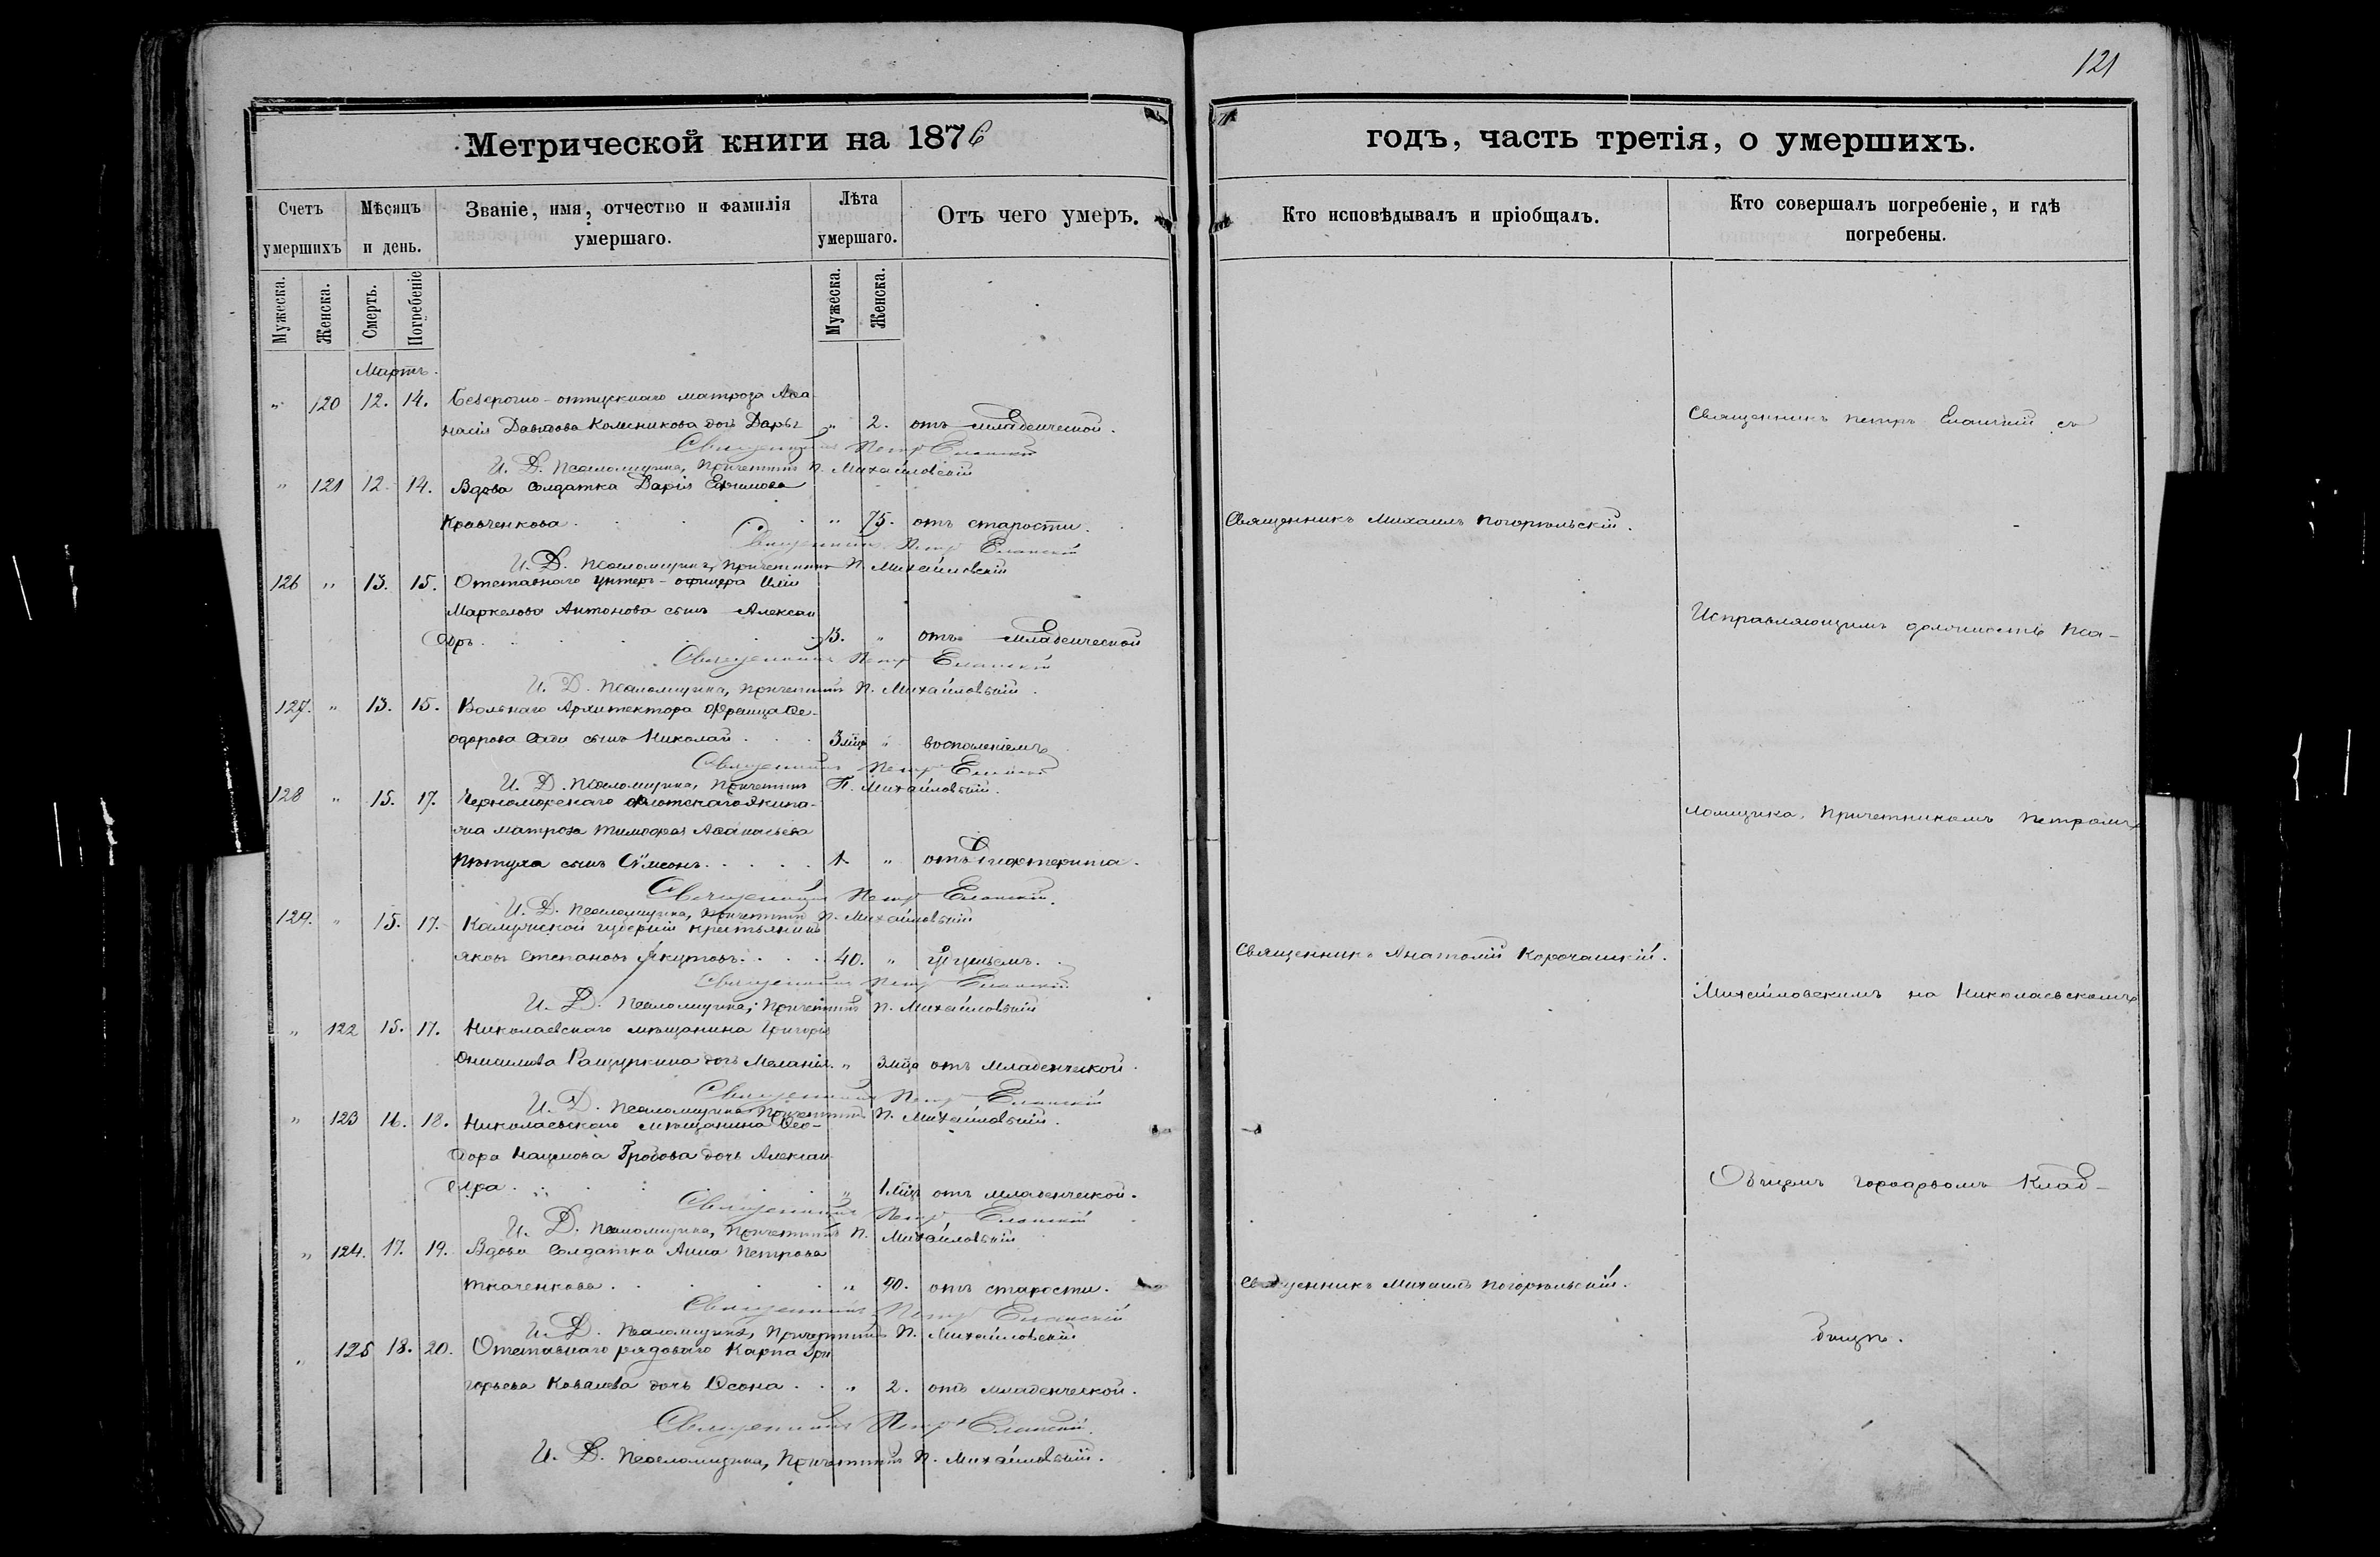 121
Метрической книги на 1876
годъ, часть третія, о умершихъ.
Счетъ умершихъ
Мѣсяцъ и день.
Званіе, имя, отчество и фамилія умершаго.
Лѣта умершаго.
Отъ чего умеръ.
Кто исповѣдывалъ и пріобщалъ.
Кто совершалъ погребеніе, и гдѣ погребены.
Мужеска.
Женска.
Смерть.
Погребеніе
Мужеска.
Женска.
Мартъ.
" 120 12. 14. матроза Аѳа-
насія Давидова Колесникова дочь Дарья " 2. отъ младенческой.
Священникъ Петръ Еланскій
И. Д. Псаломщика, Причетникъ П. Михайловскій
" 121 12. 14. Вдова Солдатка Дарія Ефимова
Кравченкова. " 75. отъ старости. Священникъ Михаилъ Погорѣльскій.
Священникъ Петръ Еланскій
И. Д. Псаломщика, Причетникъ П. Михайловскій
126 " 13. 15. Отставнаго Унтеръ-офицера Иліи
Маркелова Антонова сынъ Алексан
дръ. 3. " отъ младенческой
Священникъ Петръ Еланскій
И. Д. Псаломщика, Причетникъ П. Михайловскій.
127. " 13. 15. Вольнаго Архитектора Франца Ѳе-
одорова сынъ Николай. 3 мѣц " воспаленіемъ
Священникъ Петръ Еланскій
И. Д. Псаломщика, Причетникъ П. Михайловскій.
128 " 15. 17. Черноморскаго флотскаго Экипа-
жа матроза Тимофея Аѳанасьева
Пѣтуха сынъ Сѵмеонъ. 1. " отъ дифтерита.
Священникъ Петръ Еланскій.
И. Д. Псаломщика, Причетникъ П. Михайловскій
129. " 15. 17. Калужской губерніи крестьянинъ
Яковъ Степановъ Якутовъ. 40. " Священникъ Анатолій Корочанскій.
Священникъ Петръ Еланскій
И. Д. Псаломщика, Причетникъ П. Михайловскій
" 122 15. 17. Николаевскаго мѣщанина Григорія
Онисимова Ращупкина дочь Меланія. " 3 мѣца отъ младенческой.
Священникъ Петръ Еланскій
И. Д. Псаломщика Причетникъ П. Михайловскій.
" 123 16. 18. Николаевскаго мѣщанина Ѳео-
дора Наумова Гробова дочь Алексан
дра. " 1 мѣц отъ младенческой.
Священникъ Петръ Еланскій
И. Д. Псаломщика, Причетникъ П. Михайловскій
" 124. 17. 19. Вдова Солдатка Анна Петрова
Ткаченкова. " 90. отъ старости. Священникъ Михаилъ Погорѣльскій.
Священникъ Петръ Еланскій
И. Д. Псаломщика, Причетникъ П. Михайловскій
" 125 18. 20. Отставнаго рядоваго Карпа Гри
горьева Ковалева дочь " 2. отъ младенческой.
Священникъ Петръ Еланскій.
И. Д. Псаломщика, Причетникъ П. Михайловскій.
Священникъ Петръ Еланскій съ
Исправляющимъ должность Пса-
ломщика, Причетникомъ Петромъ
Михайловскимъ на Николаевскомъ
Общемъ городскомъ Клад-
бищѣ.